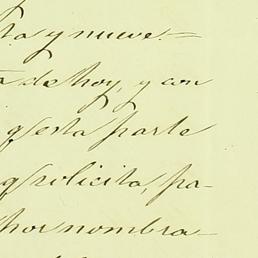 ta y nueve.=
de hoy, y con
q esta parte
q solicita, pa-
hor nombra-